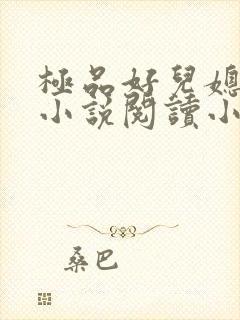 極品好兒媳
小説閱讀小
桑巴